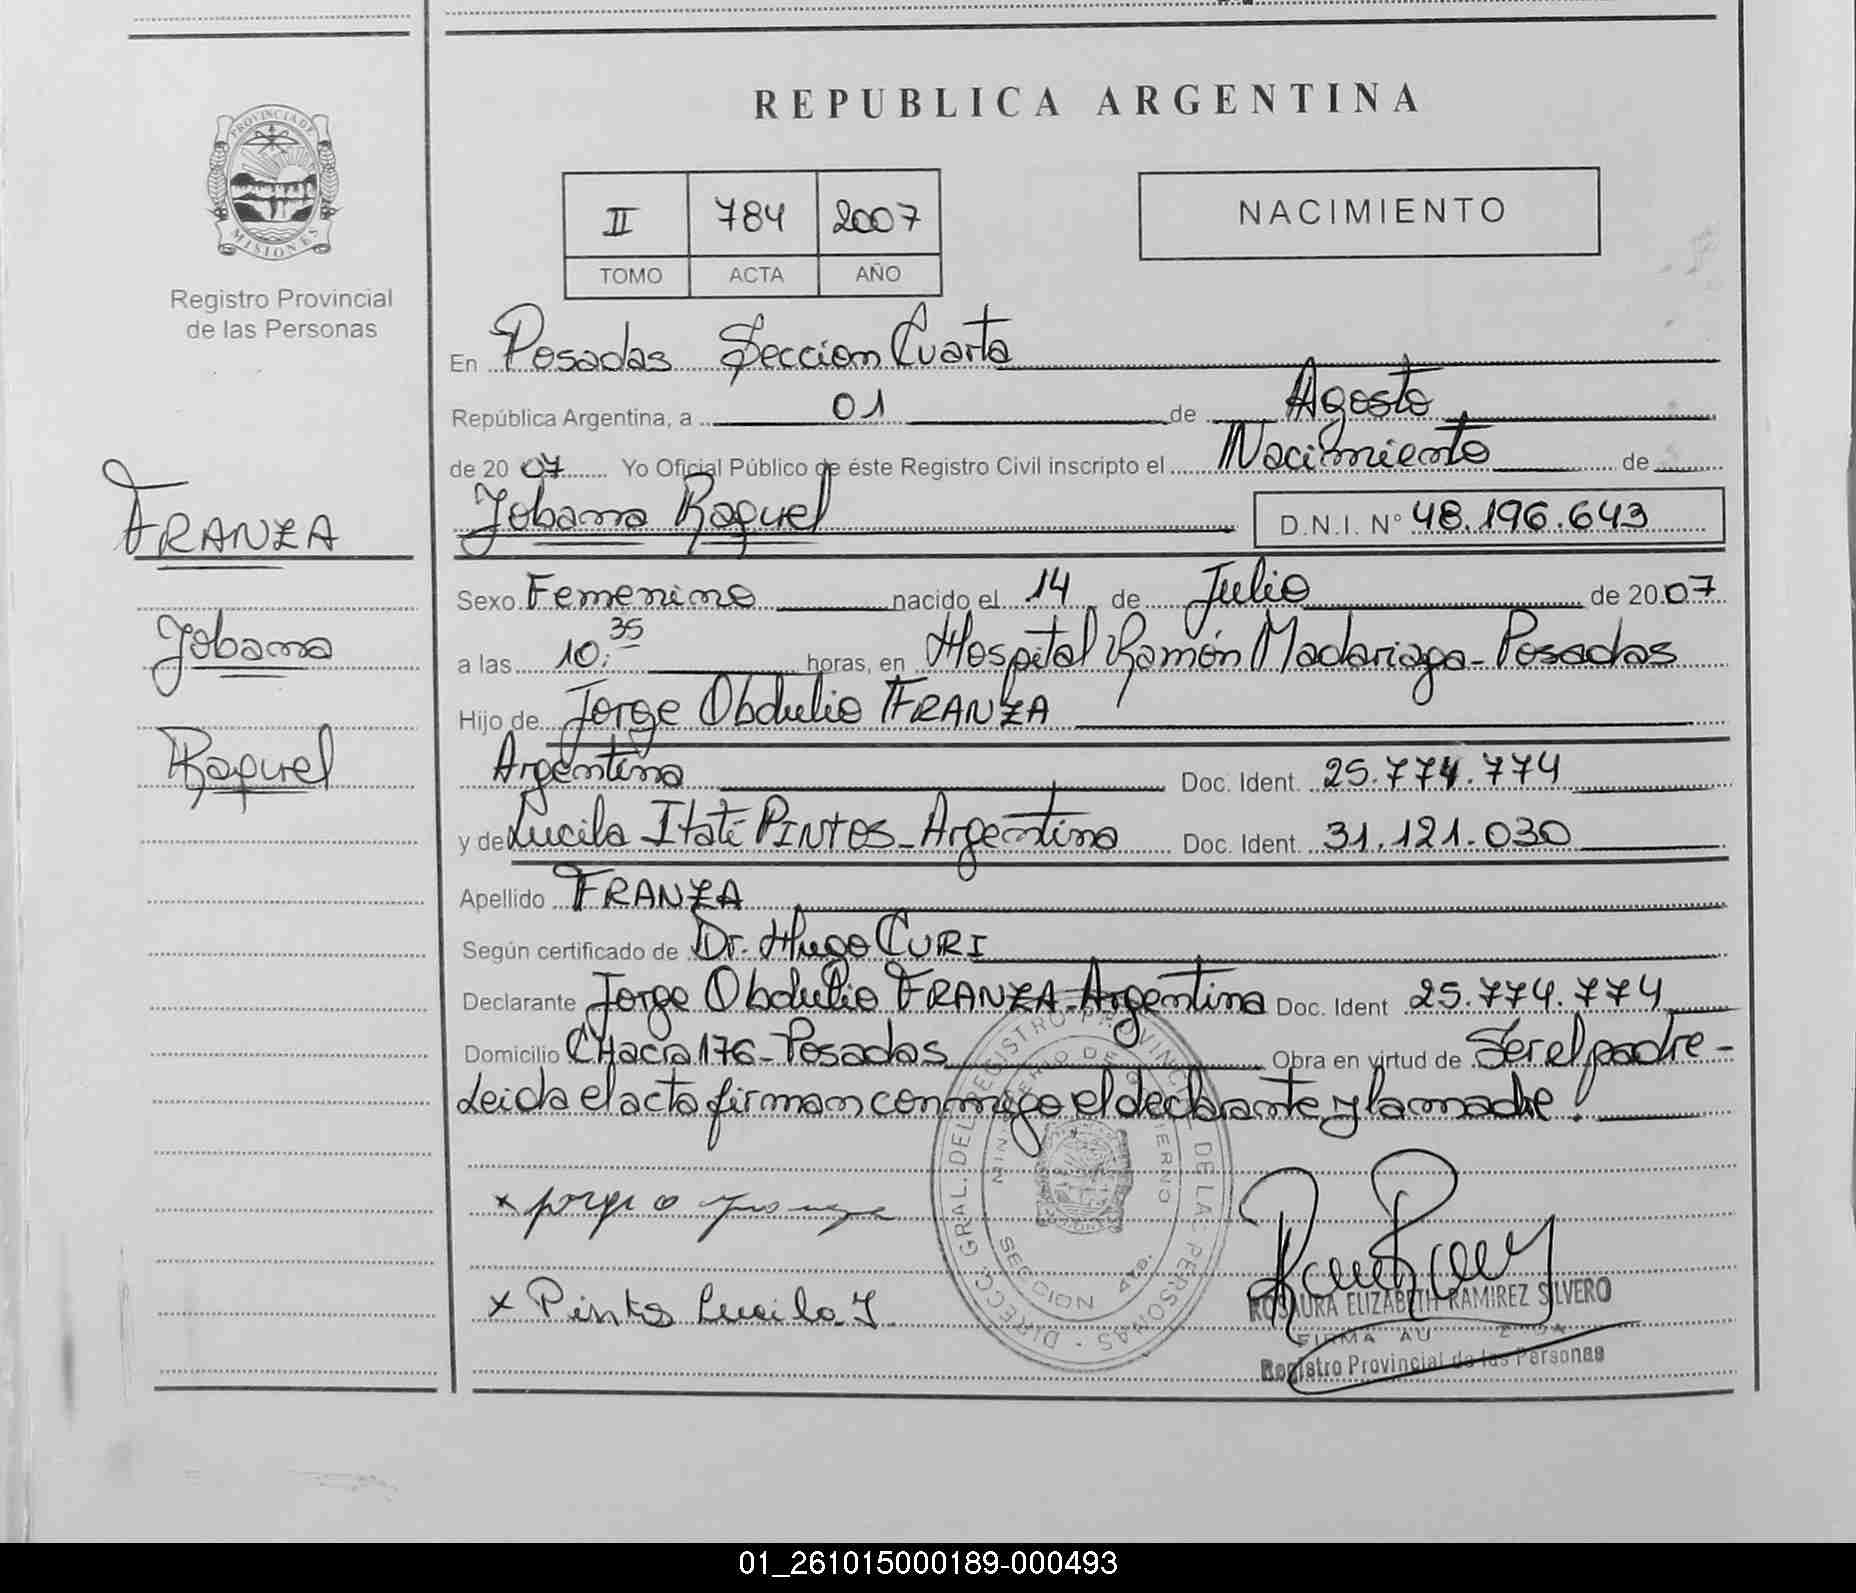 REPUBLICA ARGENTINA
PROVINCIA DE
MISIONES
Registro Provincial
de las Personas
II 784 2007
TOMO ACTA AÑO
NACIMIENTO
En Posadas Seccion Cuarta
República Argentina, a 01 de Agosto
de 2007 Yo Oficial Público de éste Registro Civil inscripto el Nacimiento de
Jobana Raquel D.N.I. N° 48.196.643
FRANZA
Jobana
Raquel
Sexo Femenino nacido el 14 de Julio de 2007
a las 10:35 horas, en Hospital Ramón Madariaga - Posadas
Hijo de Jorge Obdulio FRANZA
Argentina Doc. Ident. 25.774.774
y de Lucila Itatí PINTOS - Argentina Doc. Ident. 31.121.030
Apellido FRANZA
Según certificado de Dr. Hugo CURI
Declarante Jorge Obdulio FRANZA - Argentina Doc. Ident 25.774.774
Domicilio CHacra 176 - Posadas Obra en virtud de Ser el padre -
Leida el acta firman conmigo el declarante y la madre.
DIRECC. GRAL. DEL REGISTRO PROVINCIAL DE LAS PERSONAS
MINISTERIO DE GOBIERNO
SECCION 4ta.
x Pintos Lucila I.
ROSAURA ELIZABETH RAMIREZ SILVERO
FIRMA
Registro Provincial de las Personas
01_261015000189-000493